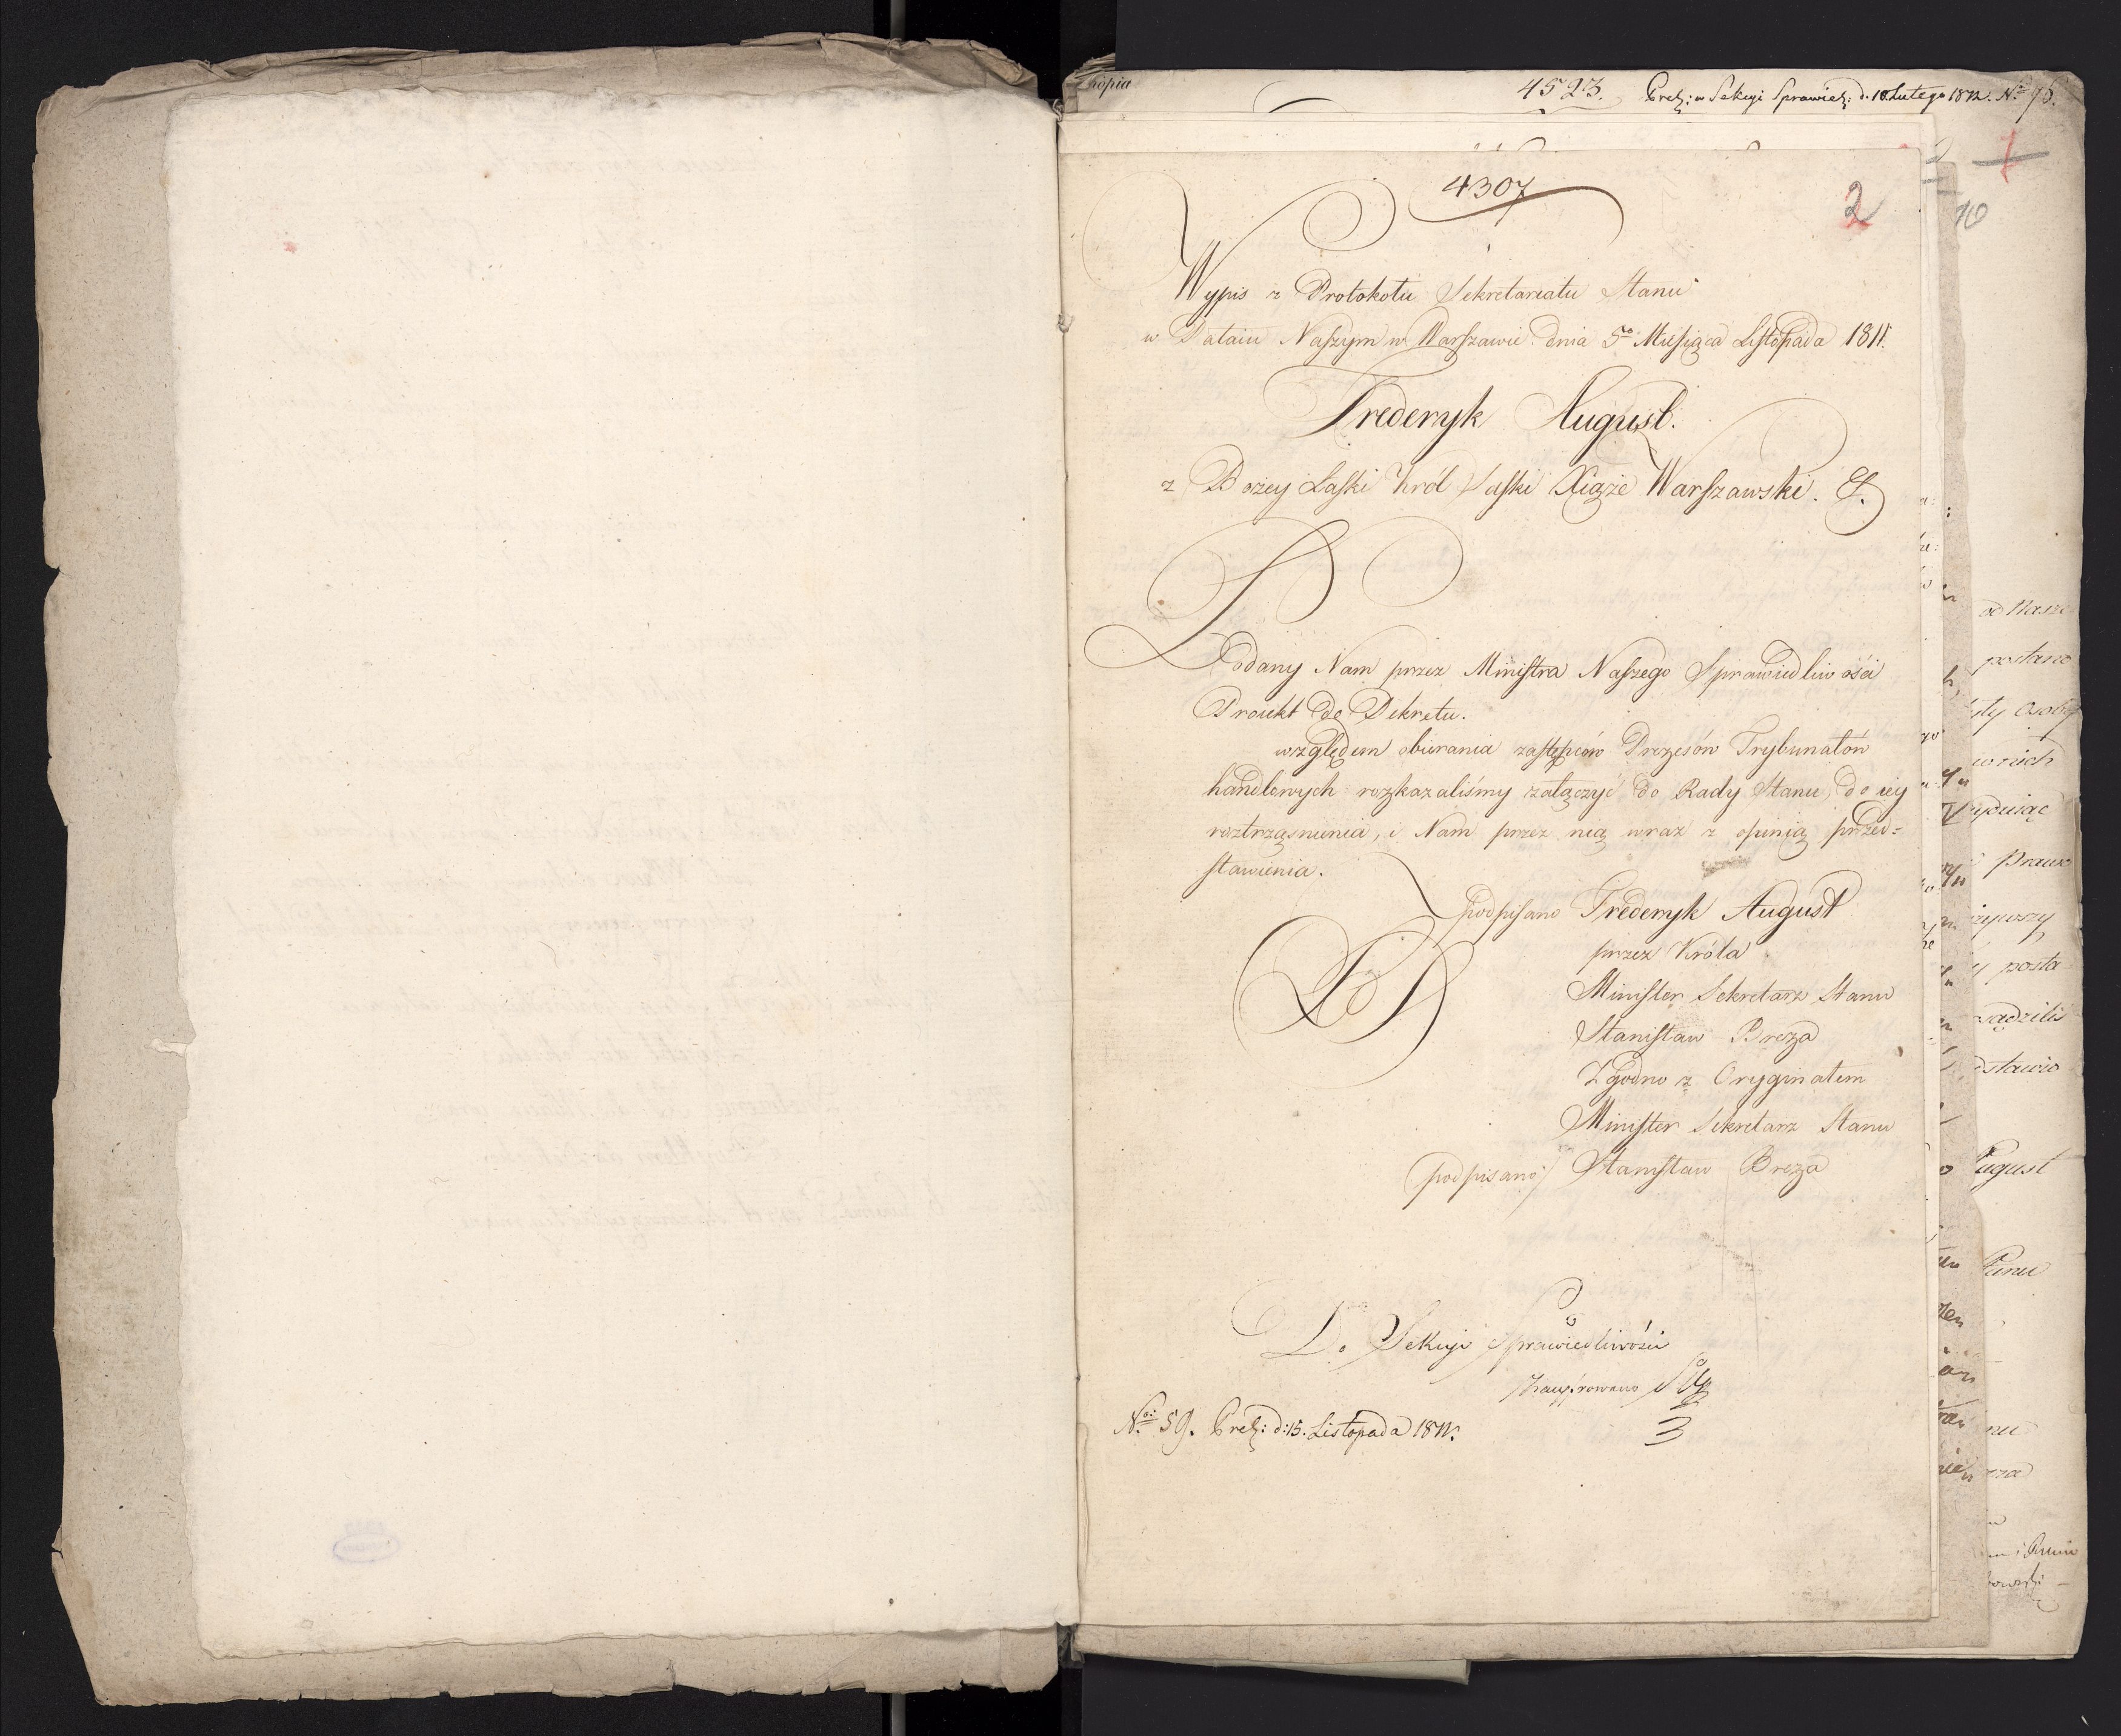 kopia
4523. Prez: w Sekcyi Sprawied: d. 10. Lutego 1812. No 76.
1
4307
2
10
Wypis z Protokołu Sekretariatu Stanu
w Pałacu Naszym w Warszawie dnia 5o Miesiąca Listopada 1811.
Frederyk August.
z Bożey Łaski Król Saski Xiąże Warszawski. &.
Podany Nam przez Ministra Naszego Sprawiedliwości
Proiekt do Dekretu.
względem obierania zastępców Prezesów Trybunałów
handlowych rozkazaliśmy załączyć do Rady Stanu, do iey
roztrząśnienia, i Nam przez nią wraz z opinią przed=
stawienia.
podpisano Frederyk August
przez Króla
Minister Sekretarz Stanu
Stanisław Breza
Zgodno z Oryginałem
Minister Sekretarz Stanu
podpisano) Stanisław Breza
Do Sekcyi Sprawiedliwości
3
No: 59. Prez: d: 15. Listopada 1811.
od Nasze
postano
osoby
w nich
Prawo
posta
sądzili
stawio
August
Panu